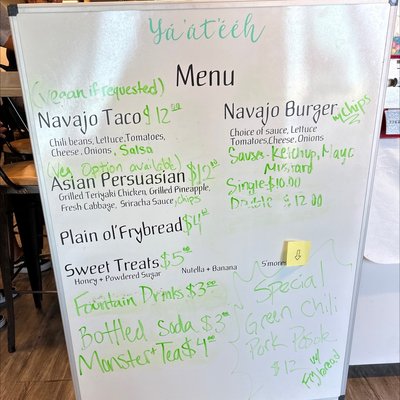 Yá'át'ééh
Menu
(vegan if requested)
Navajo Taco $12.00
Chili beans, Lettuce, Tomatoes,
Cheese, Onions, Salsa
(Veg Option available)
Asian Persuasian $12.00
Grilled Teriyaki Chicken, Grilled Pineapple,
Fresh Cabbage, Sriracha Sauce, chips
Plain ol'Frybread $4.00
Sweet Treats $5.00
Honey + Powdered Sugar Nutella + Banana S'mores
Fountain Drinks $3.00
Bottled Soda $3.00
Monster + Tea $4.00
Navajo Burger w/ chips
Choice of sauce, Lettuce
Tomatoes, Cheese, Onions
Sauses - Ketchup, Mayo
Mustard
Single - $10.00
Double $12.00
Special
Green Chili
Pork Posole
$12 w/
Frybread